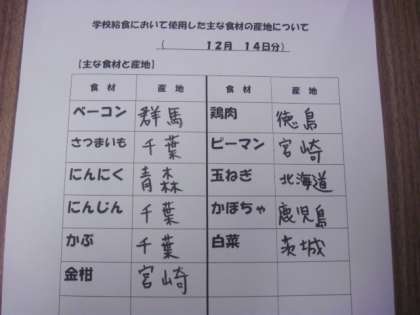 学校給食において使用した主な食材の産地について
( 12月 14日分)
【主な食材と産地】
食材 産地 食材 産地
ベーコン 群馬 鶏肉 徳島
さつまいも 千葉 ピーマン 宮崎
にんにく 青森 玉ねぎ 北海道
にんじん 千葉 かぼちゃ 鹿児島
かぶ 千葉 白菜 茨城
金柑 宮崎